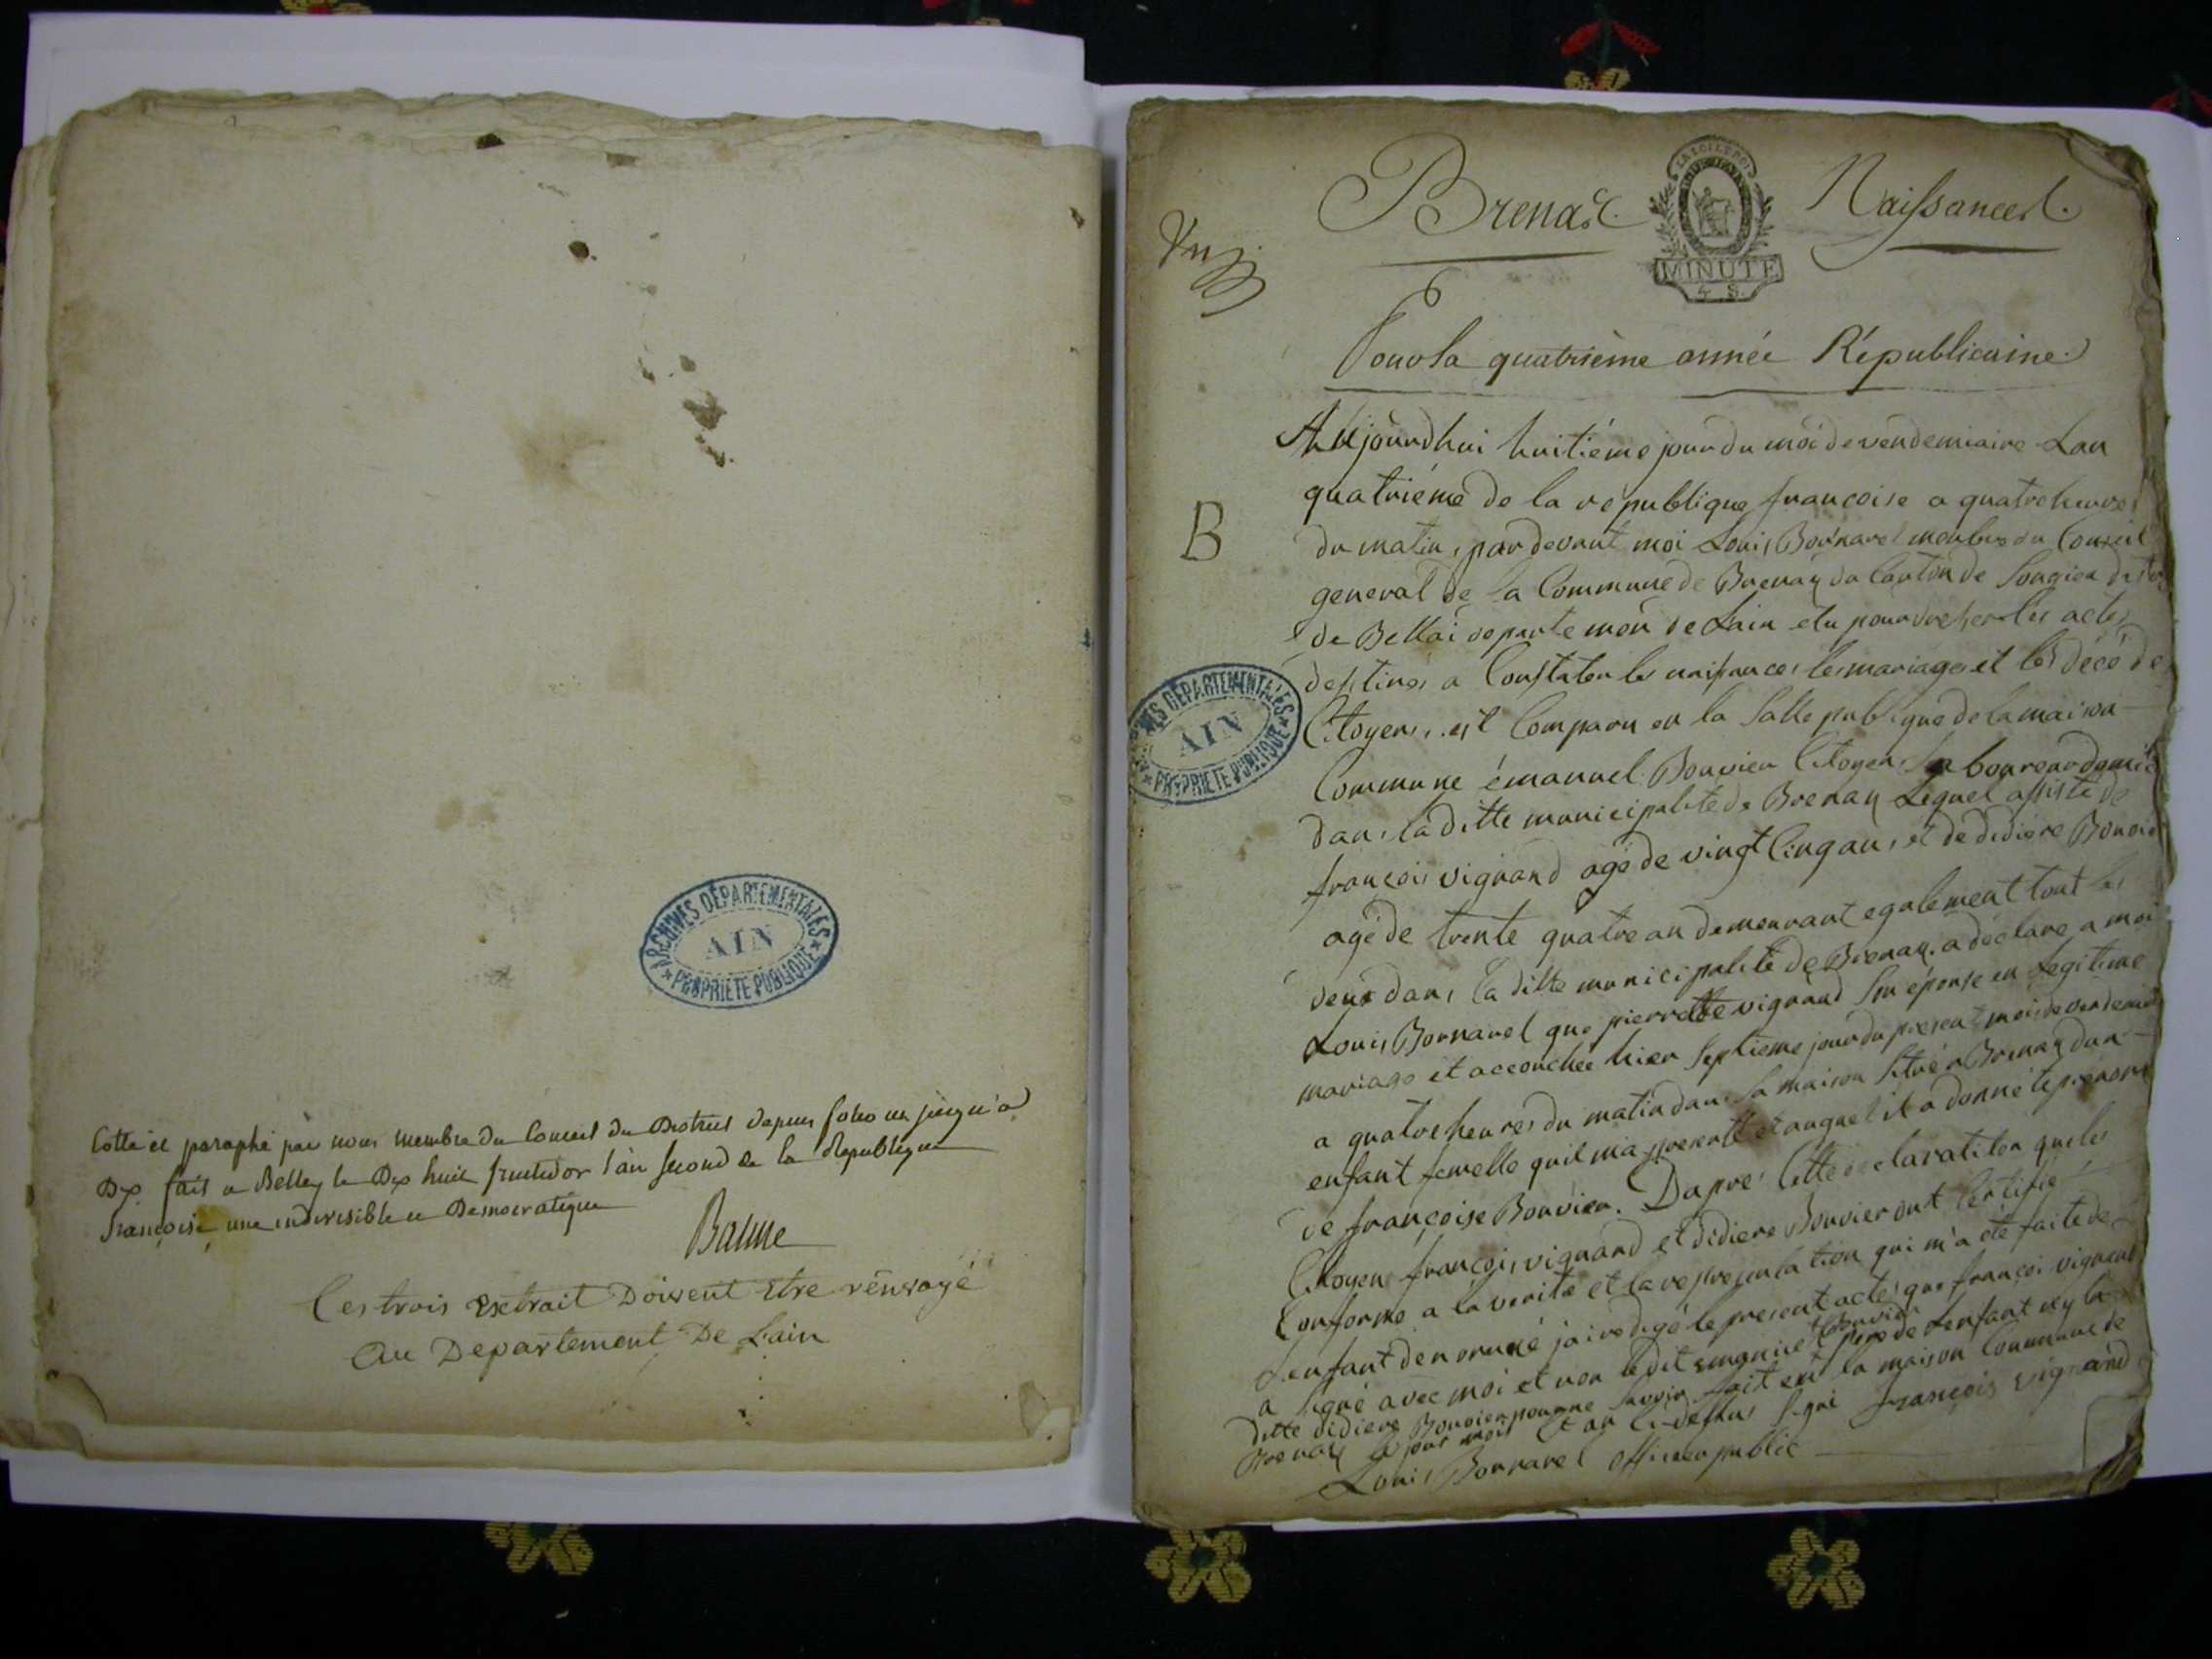 ARCHIVES DÉPARTEMENTALES
AIN
PROPRIETE PUBLIQUE
Cotté et paraphé par nous membre du Conseil du District depuis folio un jusqu'a
Dix fait a Belley le Dix huit fructidor l'an second de la Republique
françoise une indivisible et Democratique
Balme
Ces trois extrait Doivent Etre rénvoyé
Au Departement De L'ain
Brenaz. Naissances.
LA LOI LE ROI
MINUTE
4 S.
Un
Pour la quatrième année Républicaine
Aujourdhui huitiéme jour du moi de vendemiaire Lan
quatriéme de la republique françoise a quatre heures
B
du matin, par devant moi Louis Bornarel membre du Conseil
general de la Commune de Brenaz du Canton de Songieu
de Bellai departement de Lain elu pour dresser les actes
destinés a Constater les naissances les mariages et les décé de
Citoyens, est Comparu en la Salle publique de la maison
DÉPARTEMENTALES
AIN
PROPRIETE PUBLIQUE
Commune émanuel Bouvier Citoyen Laboureur domicil
dans la ditte municipalité de Brenaz Lequel assisté de
françois vignand agé de vingt Cinq ans, et de didiere Bouvie
agé de trente quatre an demeurant egalement tout les
deux dans la ditte municipalité de Brenaz. a déclare a moi
Louis Bornarel que pierrette vignand Son éponse en Legitime
mariage et accouchée hier Septieme jour du present mois de vendemi
a quatre heures du matin dans Sa maison Situé a Brenaz dun
enfant femelle quil ma presenté et auquel il a donné le prenom
de françoise Bouvier. Dapré Cette declaration que les
Citoyens françois vignand et didiere Bouvier ont Certifié
Conforme a la verité et la representation qui m'a été faite de
Lenfant denommé jai redigé le present acte, que françoi vignand
a Signé avec moi et non ledit emanuel Bouvier pere de Lenfant ny la
ditte didiere Bouvier pour ne Savoir fait en la maison Commune de
Brenaz le jour mois et an Ci-dessus Signé françois vignand
Louis Bornarel officier public